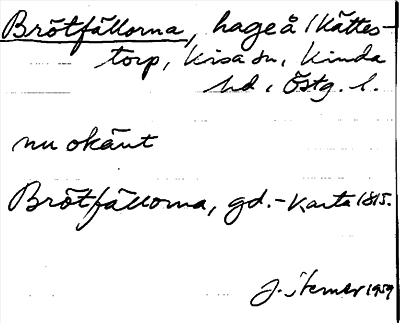 Brötfällorna, hage å Kättes-
torp, Kisa sn, Kinda
hd, Östg. l.
nu okänt
Brötfällorna, gd.-Karta 1815.
J. Sterner 1959